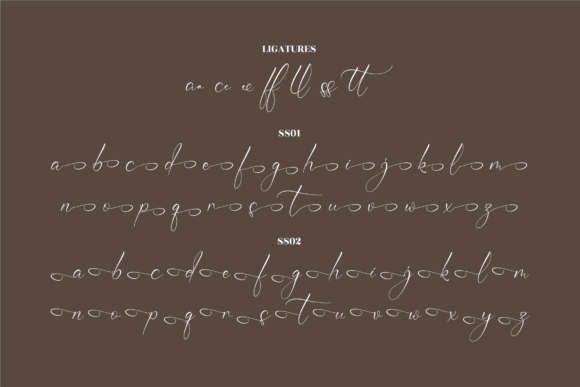 LIGATURES
ee ff ll ss tt
SS01
a b c d e f g h i j k l m
n o p q r s t u v w x z
SS02
a b c d e f g h i j k l m
n o p q r s t u v w x y z